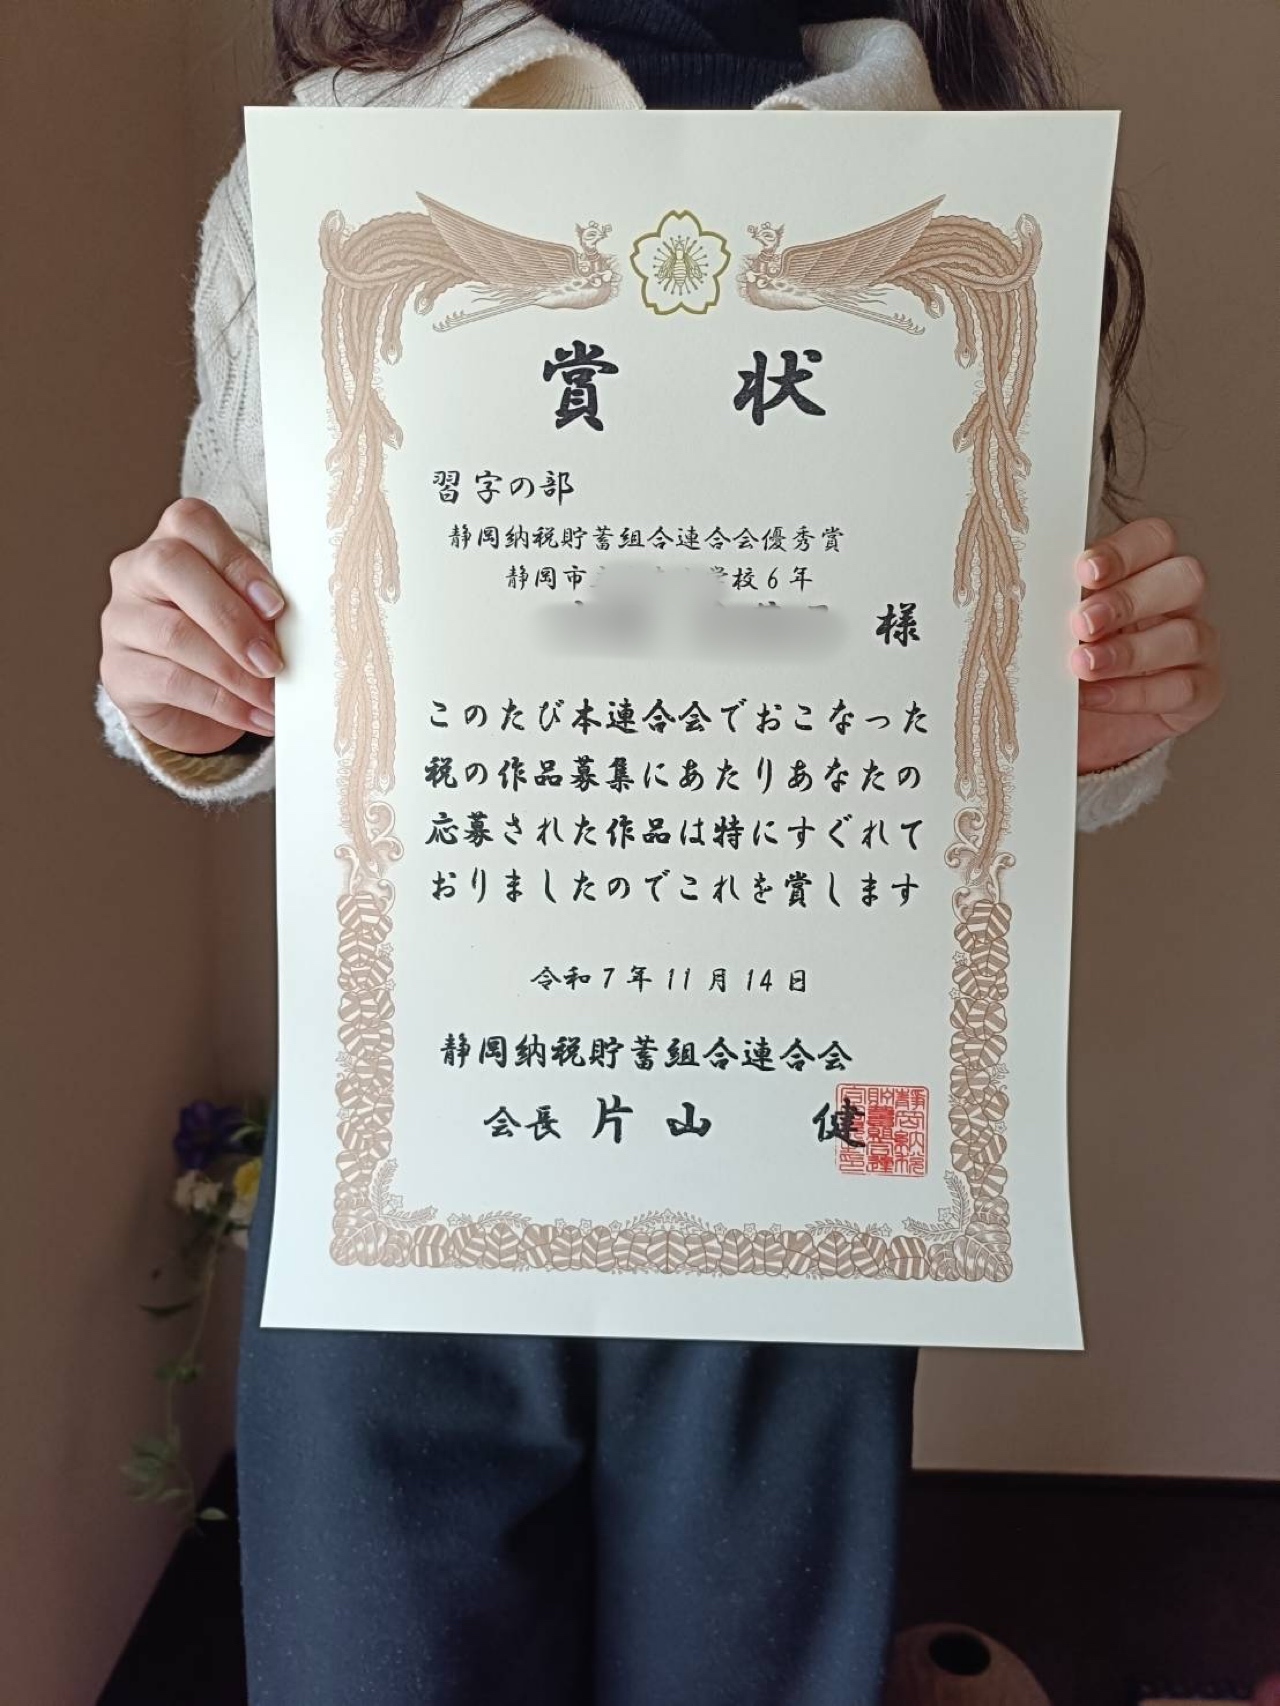 賞状
習字の部
静岡納税貯蓄組合連合会優秀賞
静岡市 学校6年
様
このたび本連合会でおこなった
税の作品募集にあたりあなたの
応募された作品は特にすぐれて
おりましたのでこれを賞します
令和7年11月14日
静岡納税貯蓄組合連合会
会長 片山 健